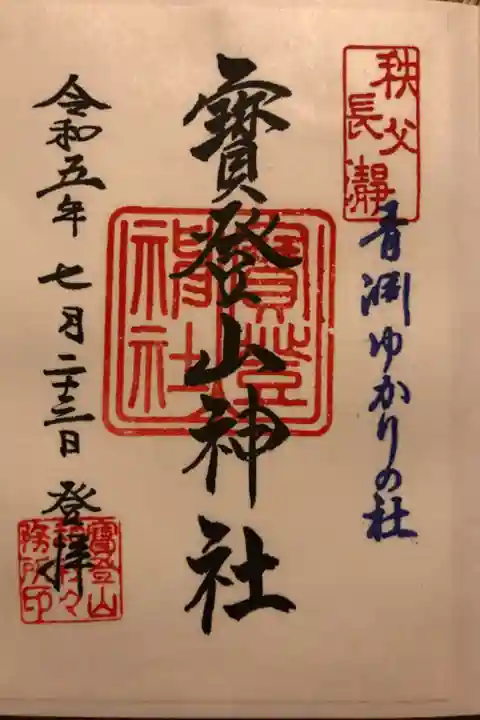 秩父
長瀞
青淵ゆかりの社
寳登山神社
寳登山
神社
令和五年七月二十三日 登拝
寳登山
神社々
務所印